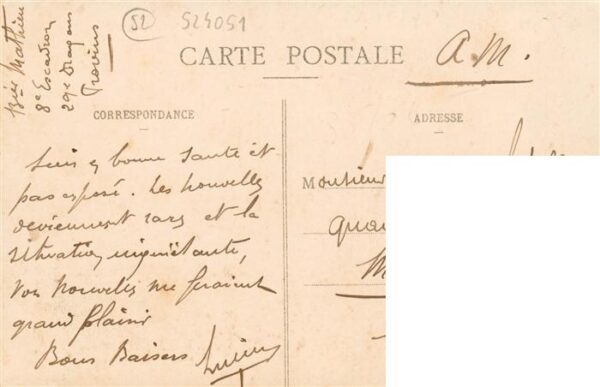 52 524051
Mathieu
8e Escadron
29e Dragons
Provins
CARTE POSTALE A.M.
CORRESPONDANCE
Suis en bonne santé et
pas exposé. Les nouvelles
deviennent rares et la
situation inquiétante,
vos nouvelles me feraient
grand plaisir
Bons Baisers Lucien
ADRESSE
Monsieur